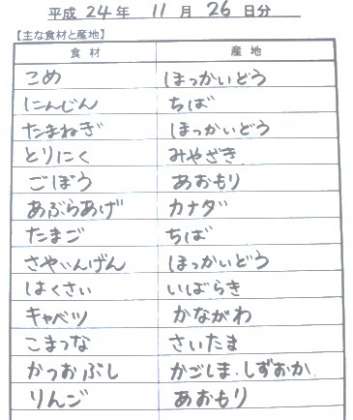 平成 24 年 11 月 26 日分
【主な食材と産地】
食材 産地
こめ ほっかいどう
にんじん ちば
たまねぎ ほっかいどう
とりにく みやざき
ごぼう あおもり
あぶらあげ カナダ
たまご ちば
さやいんげん ほっかいどう
はくさい いばらき
キャベツ かながわ
こまつな さいたま
かつおぶし かごしま.しずおか
りんご あおもり